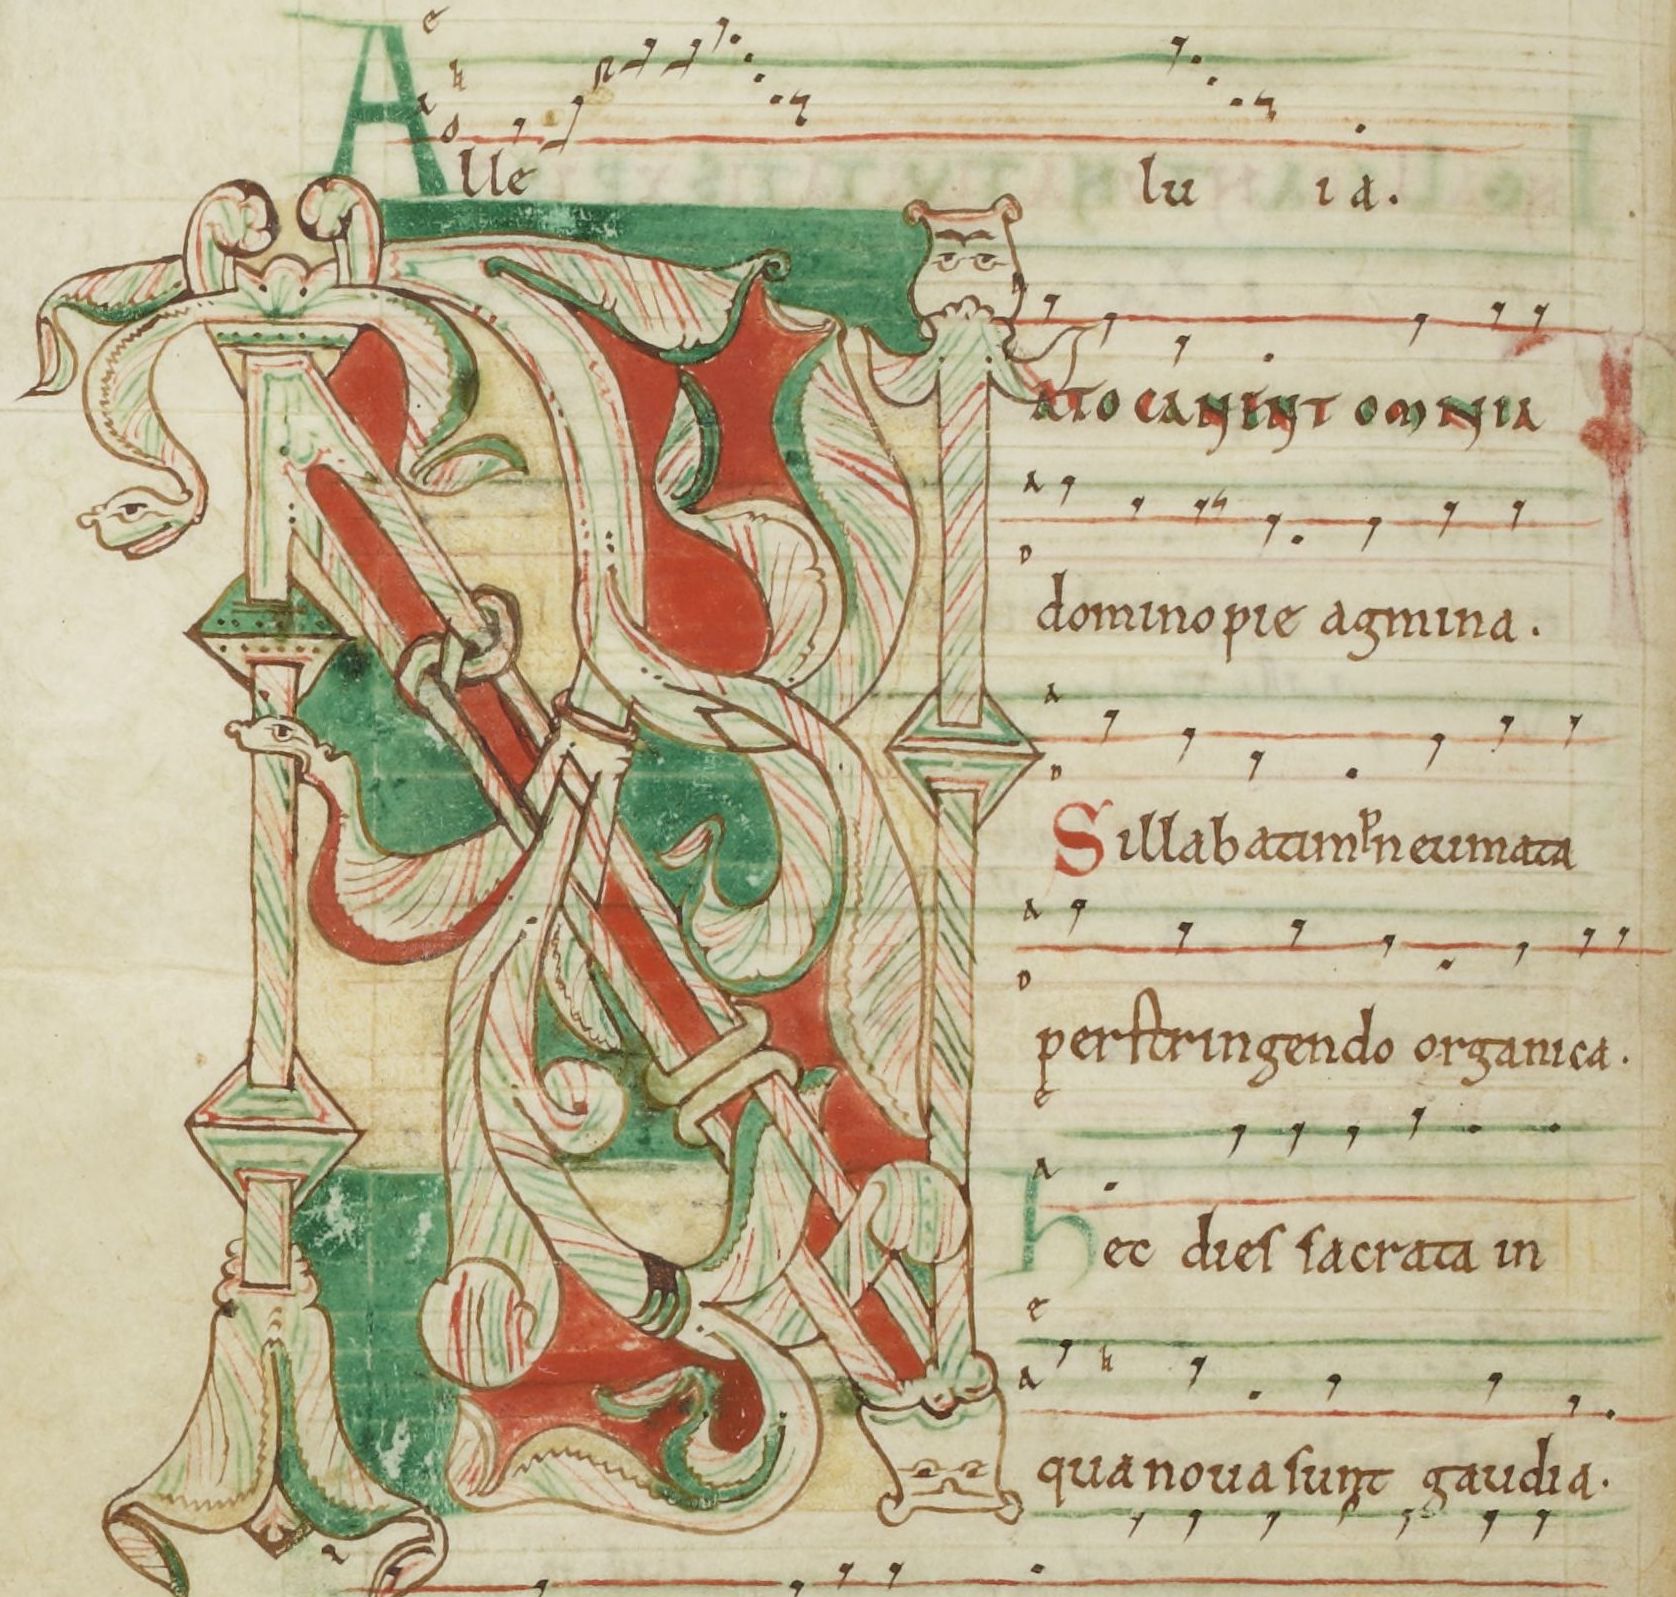 Alleluia.
NATO CANUNT OMNIA
domino pie agmina.
Sillabatim pneumata
perstringendo organica.
hec dies sacrata in
qua noua sunt gaudia.